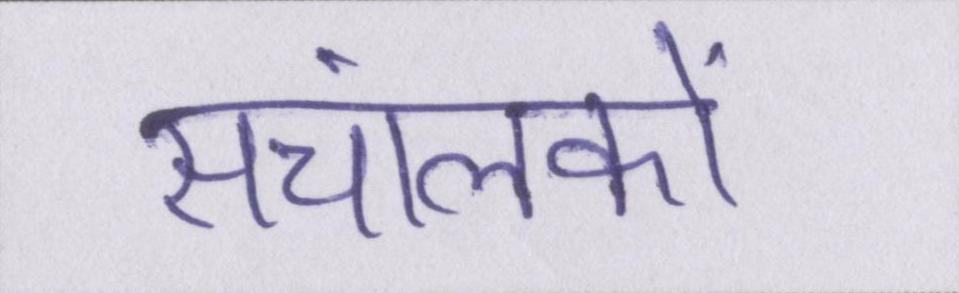 सचांलकों